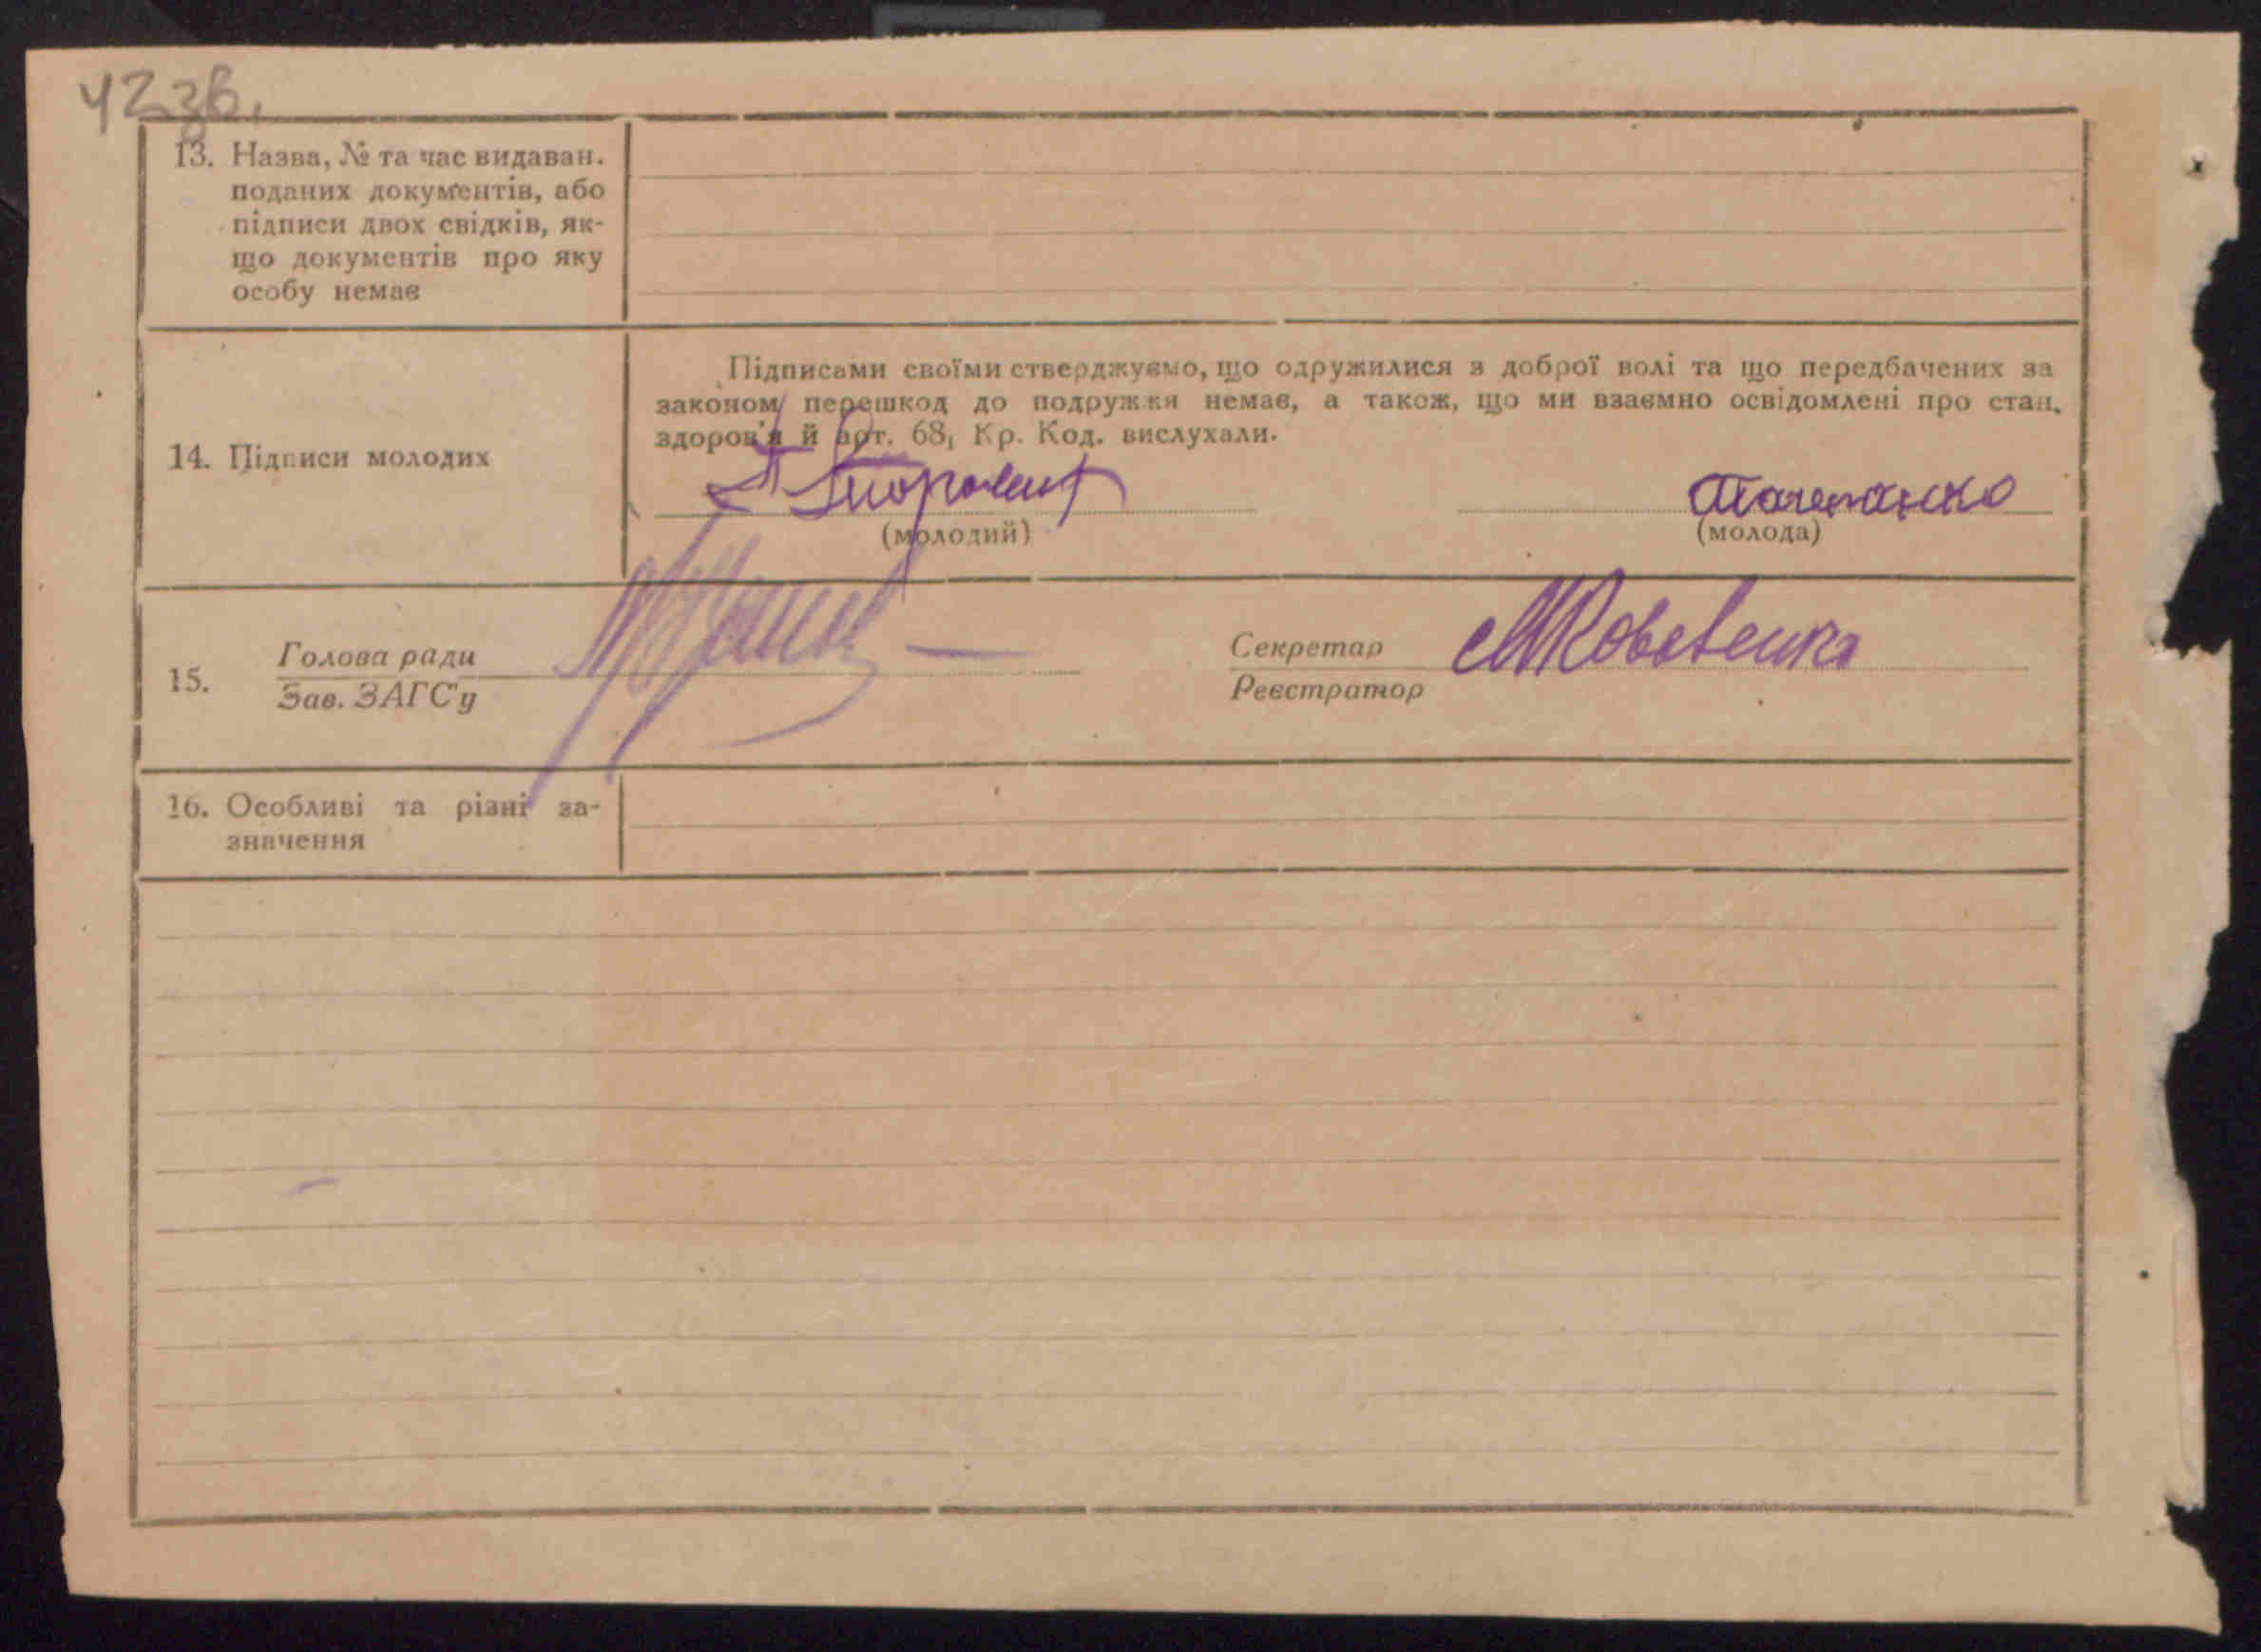 42зв.
13. Назва, № та час видаван.
поданих документів, або
підписи двох свідків, як-
що документів про яку
особу немає
Підписами своїми стверджуємо, що одружилися з доброї волі та що передбачених за
законом перешкод до подружжя немає, а також, що ми взаємно освідомлені про стан.
здоров'я й арт. 68, Кр. Код. вислухали.
14. Підписи молодих
(молодий)
(молода)
15.
Голова ради
Зав. ЗАГС'у
Секретар
Реєстратор
16. Особливі та різні за-
значення